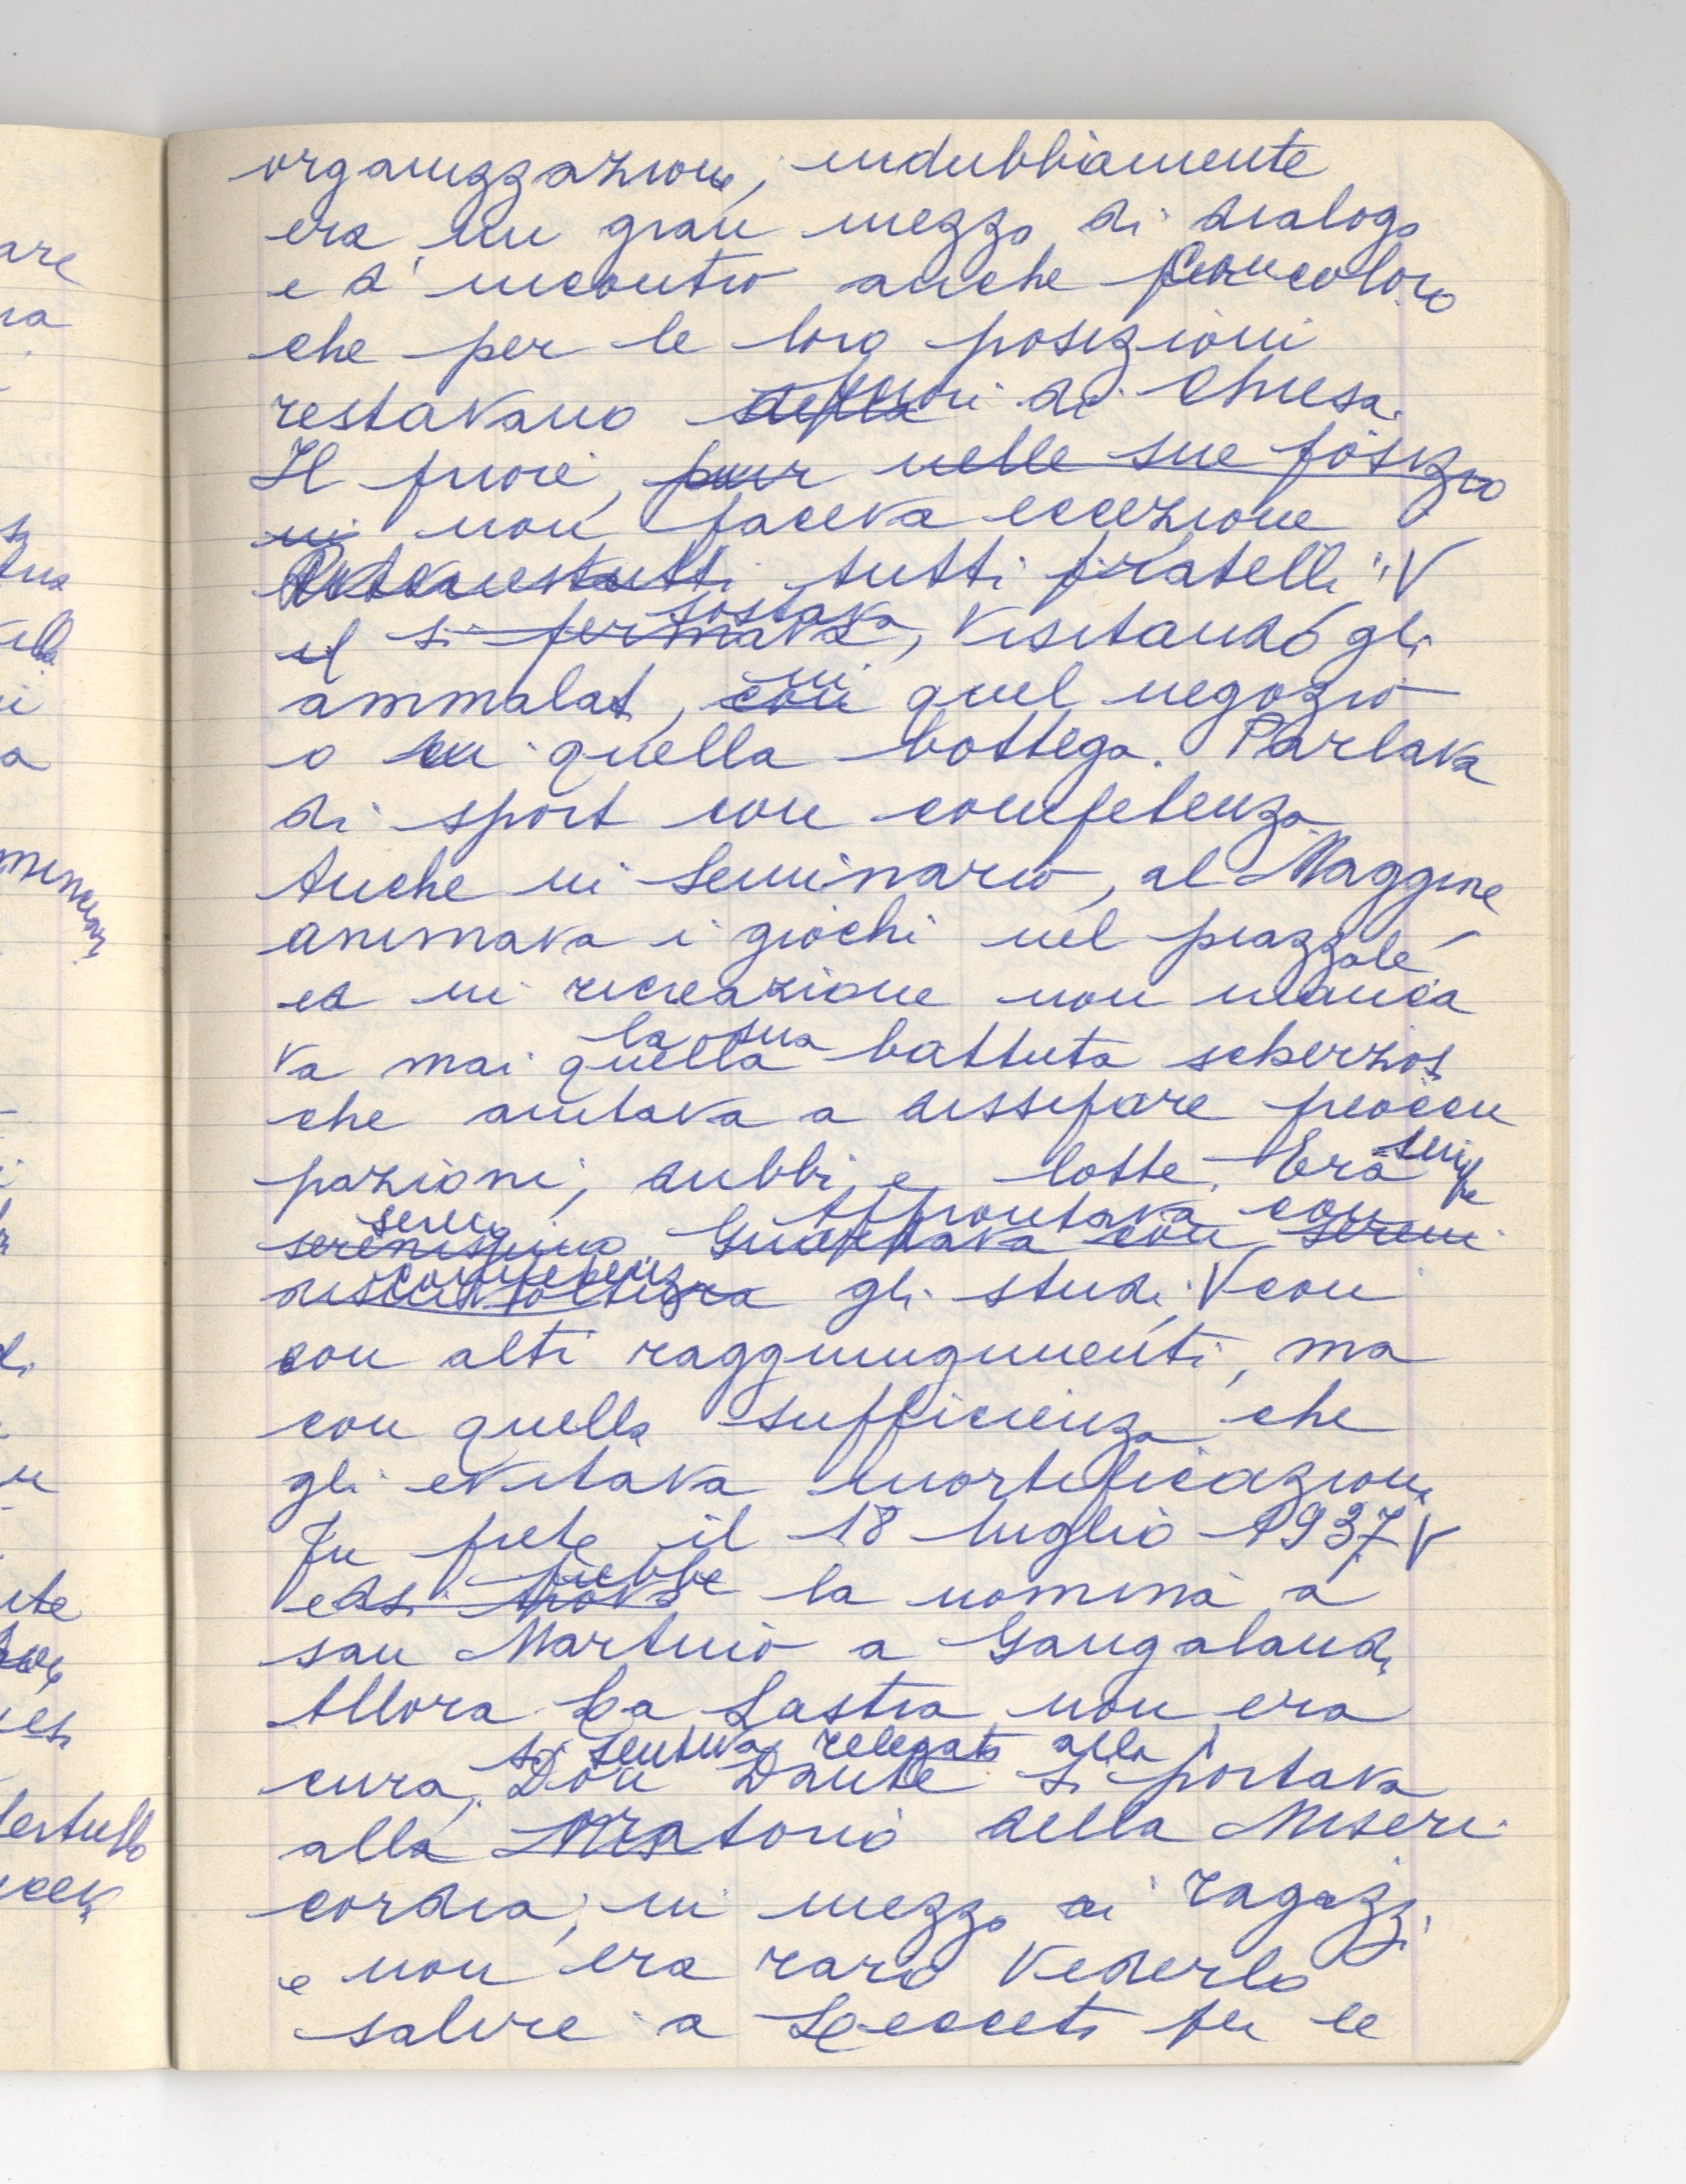 organizzazione, indubbiamente
era un gran mezzo di dialogo
e d'incontro anche con coloro
che per le loro posizioni
restavano fuori di Chiesa.
Il fuori, pur nelle sue posizio
ni non faceva eccezione
tutti fratelli "V
sostava
si fermava, visitando gli
in
ammalati, con quel negozio
o in quella bottega. Parlava
di sport con competenza.
Anche in Seminario, al Maggiore
animava i giochi nel piazzale
ed in ricreazione non manca
la sua
va mai quella battuta scherzosa
che aiutava a dissipare preoccu
pazioni, dubbi e lotte. Era sempre
sereno Affrontava con
serenissimo. Guardava con
competenza
gli studi V con
con alti raggiungimenti, ma
con quella sufficienza che
gli evitava mortificazioni
Fu prete il 18 luglio 1937 V
ed ebbe la nomina a
san Martino a Gangalandi
Allora La Lastra non era
si sentiva relegato alla
cura, Don Dante si portava
alla Oratorio della Miseri
cordia, in mezzo ai ragazzi
e non era raro vederlo
salire a Lecceto per le
are
ute